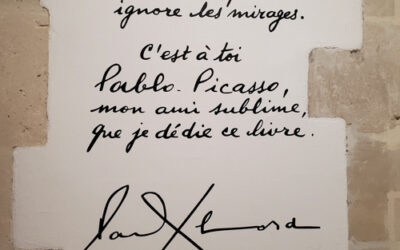 ignore les mirages.
C'est à toi
Pablo Picasso,
mon ami sublime,
que je dédie ce livre.
Paul Eluard